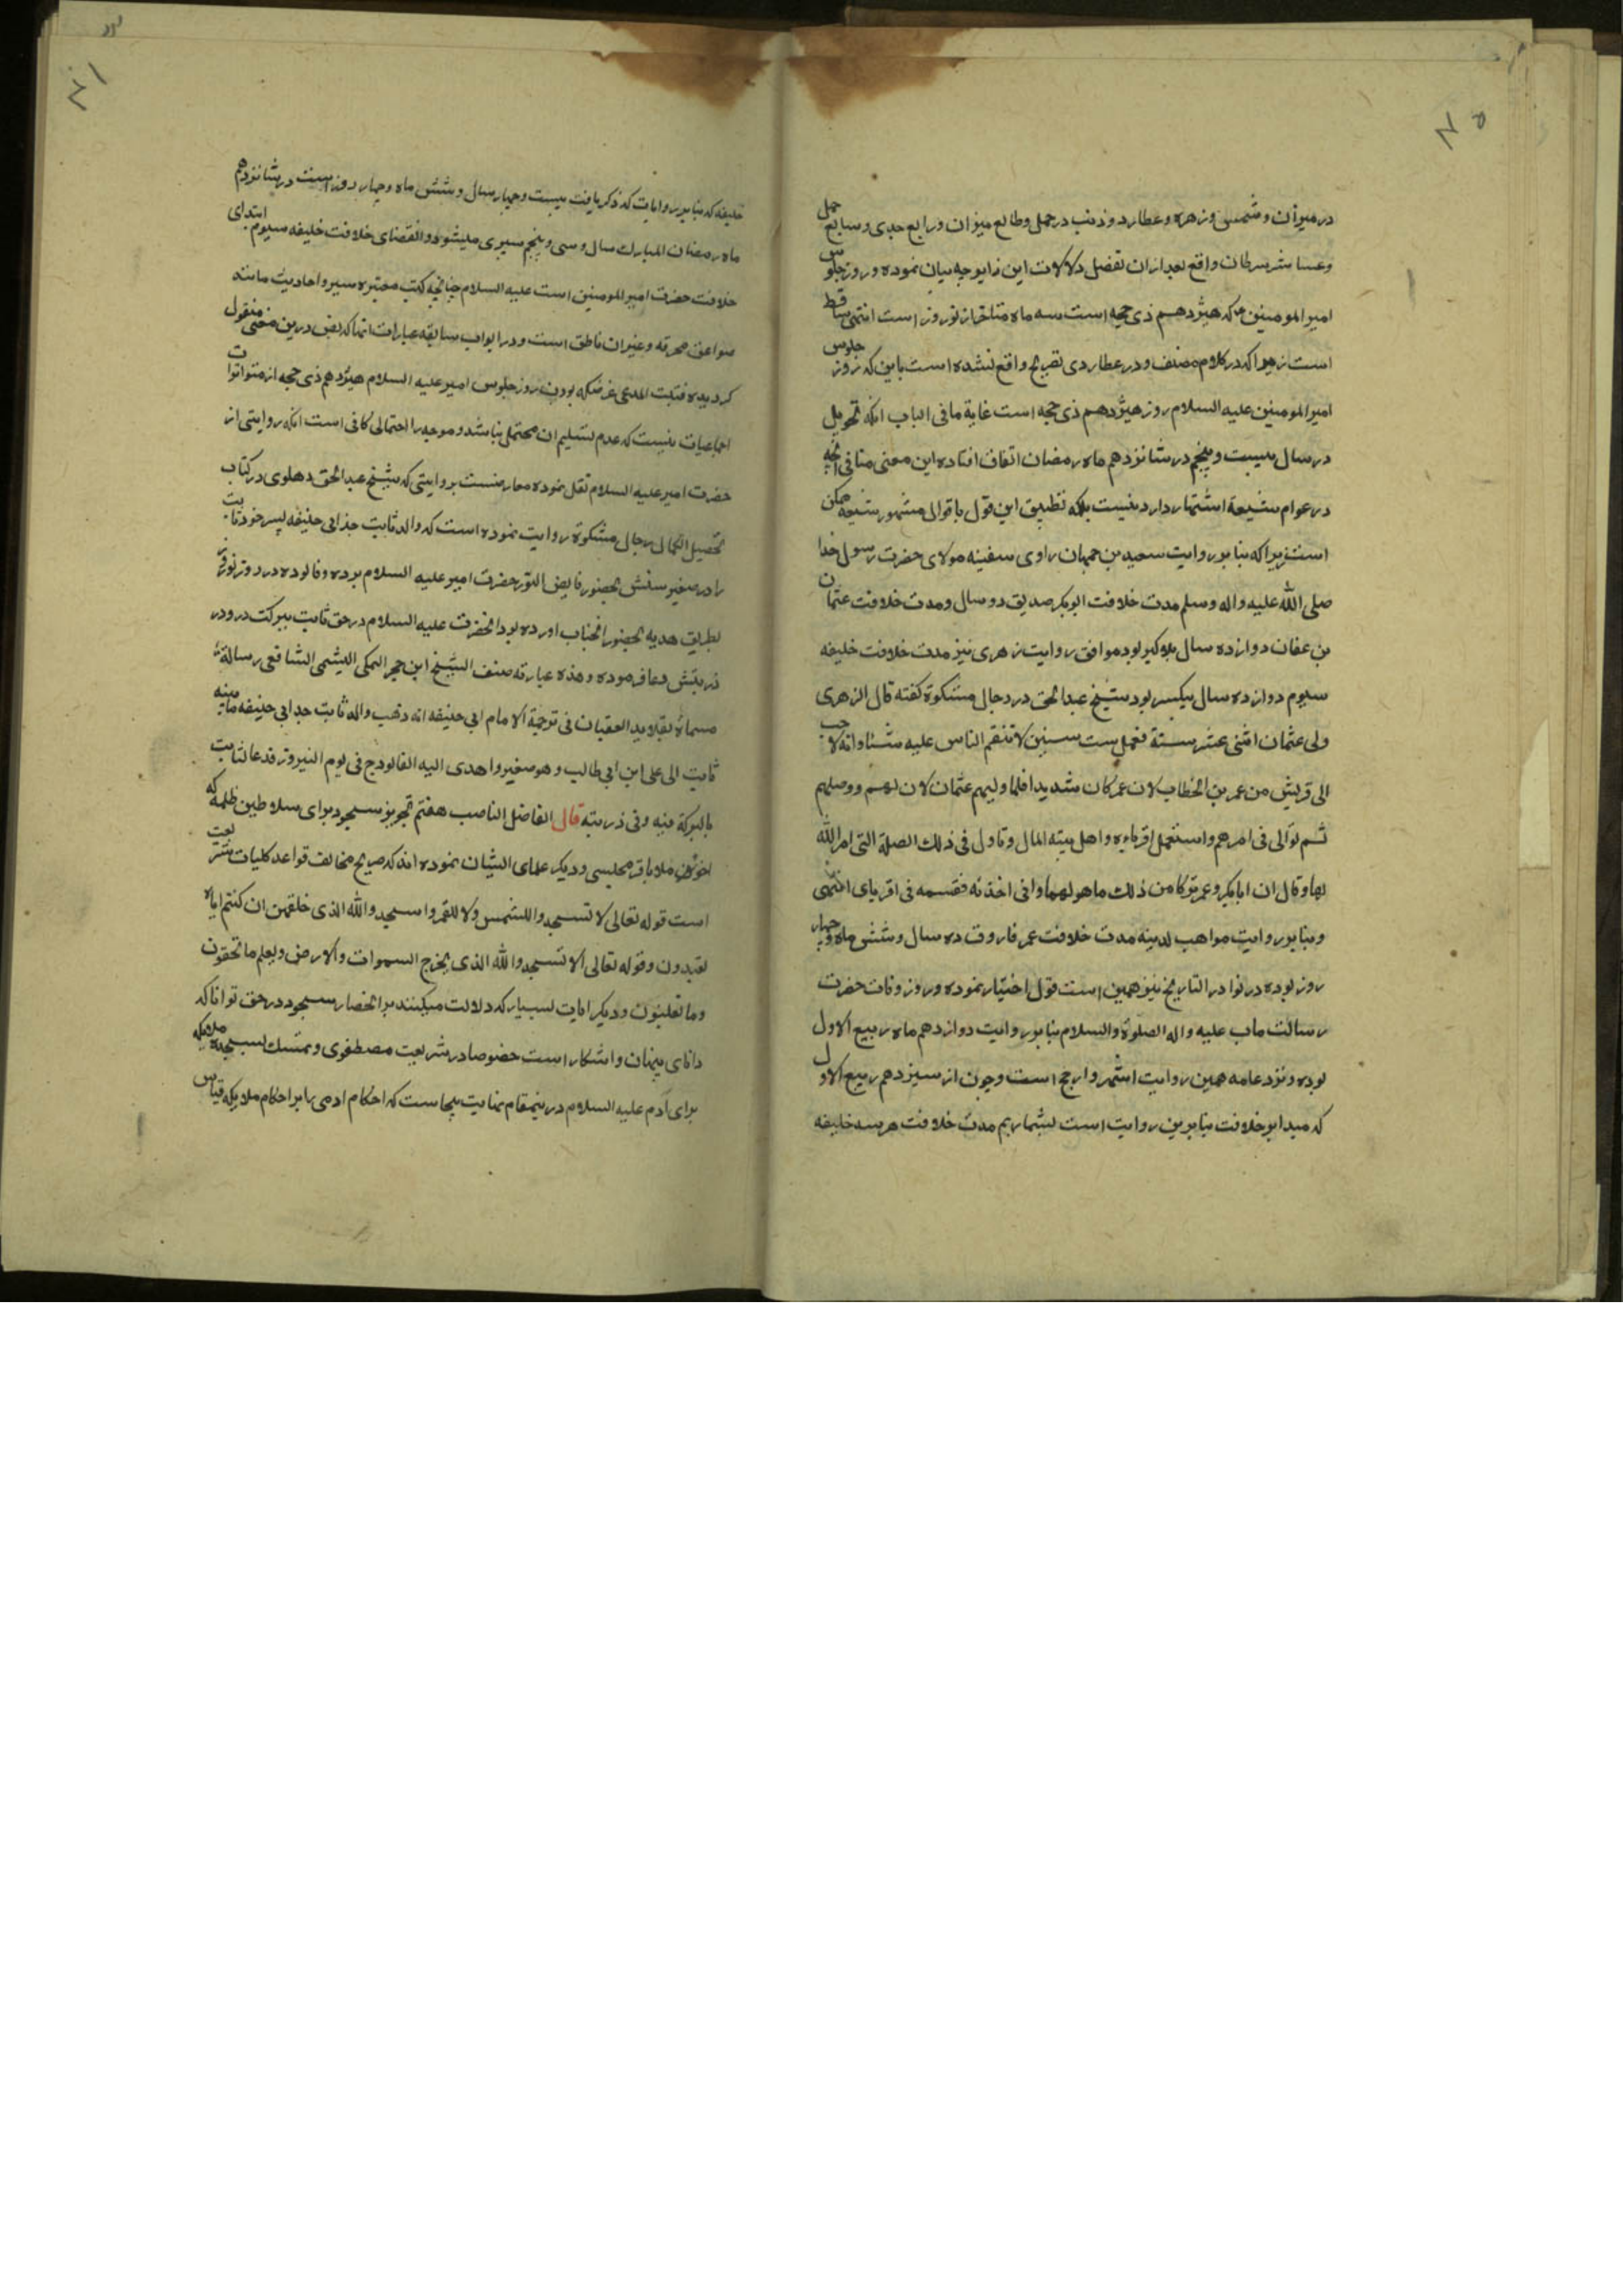 در میزان و شمس و زهره و عطارد و ذنب در حمل و طالع میزان و رابع جدی و سابع حمل
و عاشر سرطان واقع بعد ازان تفضل دلالات این زایچه بیان نموده و روز جلوس
امیر المومنین که هیژدهم ذی حجه است سه ماه متاخر از نوروز است انتهی ساقط
است زیرا که در کلام مصنف و در عطاردی تصریح واقع نشده است باین که روز جلوس
امیر المومنین علیه السلام روز هیژدهم ذی حجه است غایة ما فی الباب انکه تحویل
در سال بیست و پنجم در شانزدهم ماه رمضان اتفاق افتاده این معنی منافی انچه
در عوام شیعة اشتهار دارد نیست بلکه تطبیق این قول باقوال مشهور شیعه ممکن
است زیرا که بنا بر روایت سعید بن جمهان راوی سفینه مولای حضرت رسول خدا
صلی الله علیه واله وسلم مدت خلافت ابو بکر صدیق دو سال و مدت خلافت عثمان
بن عفان دوازده سال بلا کبر بود موافق روایت زهری نیز مدت خلافت خلیفه
سیوم دوازده سال بیکسر بود شیخ عبدالحق در رجال مشکوة کفته قال الزهری
ولی عثمان اثنی عشر سنة فعمل ست سنین لا تنقم الناس علیه شئا وانه لاحب
الی قریش من عمر بن الخطاب لان عمر کان شدیدا فلما ولیهم عثمان لان لهم ووصلهم
ثم توالی فی امرهم واستعمل اقرباءه واهل بیته المال وتاول فی ذلک الصلة التی امر الله
بها وقال ان ابابکر وعمر ترکا من ذلک ما هو لهما وانی اخذته فقسمه فی اقربای انتهی
و بنا بر روایت مواهب لدینه مدت خلافت عمر فاروق ده سال و شش ماه و چهار
روز بوده در نوادر التاریخ نیز همین است قول اختیار نموده و روز وفات حضرت
رسالت ماب علیه واله الصلوة والسلام بنا بر روایت دوازدهم ماه ربیع الاول
بوده و نزد عامه همین روایت اشهر و ارجح است و چون از سیزدهم ربیع الاول
که مبدا بر خلافت بنا برین روایت است بشماریم مدت خلافت هر سه خلیفه
خلیفه که بنا بر روایات که ذکر یافت بیست و چهار سال و شش ماه و چهار روز است در شانزدهم
ماه رمضان المبارک سال و سی و پنجم سپری میشود و انقضای خلافت خلیفه سیوم ابتدای
خلافت حضرت امیر المومنین است علیه السلام چنانچه کتب معتبره سیر و احادیث مانند
صواعق محرقه و غیران ناطق است و در ابواب سابقه عبارات انها که نص درین معنی منقول
کردیده فثبت المدعی غرضکه بودن روز جلوس امیر علیه السلام هیژدهم ذی حجه از متواترات
اجماعیات نیست که عدم تسلیم ان محتمل نباشد و موجه را احتمالی کافی است انکه روایتی از
حضرت امیر علیه السلام نقل نموده معارضست بروایتی که شیخ عبدالحق دهلوی در کتاب
تحصیل الکمال رجال مشکوة روایت نموده است که والد ثابت جد ابی حنیفه پسر خود ثابت
را در صغیر سنش بحضور فایض النور حضرت امیر علیه السلام برده و فالوده در روز نوروز
بطریق هدیه بحضور انجناب اورده بود انحضرت علیه السلام در حق ثابت ببرکت در و در
ذریتش دعا فرموده وهذه عبارته صنف الشیخ ابن حجر المکی الهیثمی الشافعی رسالة
مسماة بقلاید العقیان فی ترجمة الامام ابی حنیفه انه ذهب والد ثابت جد ابی حنیفه بابنه
ثابت الی علی ابن ابی طالب وهو صغیر واهدی الیه الفالوذج فی یوم النیروز فدعا لثابت
بالبرکة فیه وفی ذریته قال الفاضل الناصب هفتم تجویز سجود برای سلاطین ظلمه که
اخوند ملا باقر مجلسی و دیکر علمای ایشان نموده اند که صریح مخالف قواعد کلیات شریعت
است قوله تعالی لا تسجدوا للشمس ولا للقمر واسجدوا لله الذی خلقهن ان کنتم ایاه
تعبدون وقوله تعالی الا تسجدوا لله الذی یخرج السموات والارض ویعلم ما تخفون
وما تعلنون و دیکر ایات بسیار که دلالت میکنند بر انحصار سجود در حق توانا که
دانای پنهان و اشکار است خصوصا در شریعت مصطفوی و تمسک بسجده ملایکه
برای آدم علیه السلام درینمقام نهایت بیجاست که احکام ادمی را بر احکام ملایکه قیاس